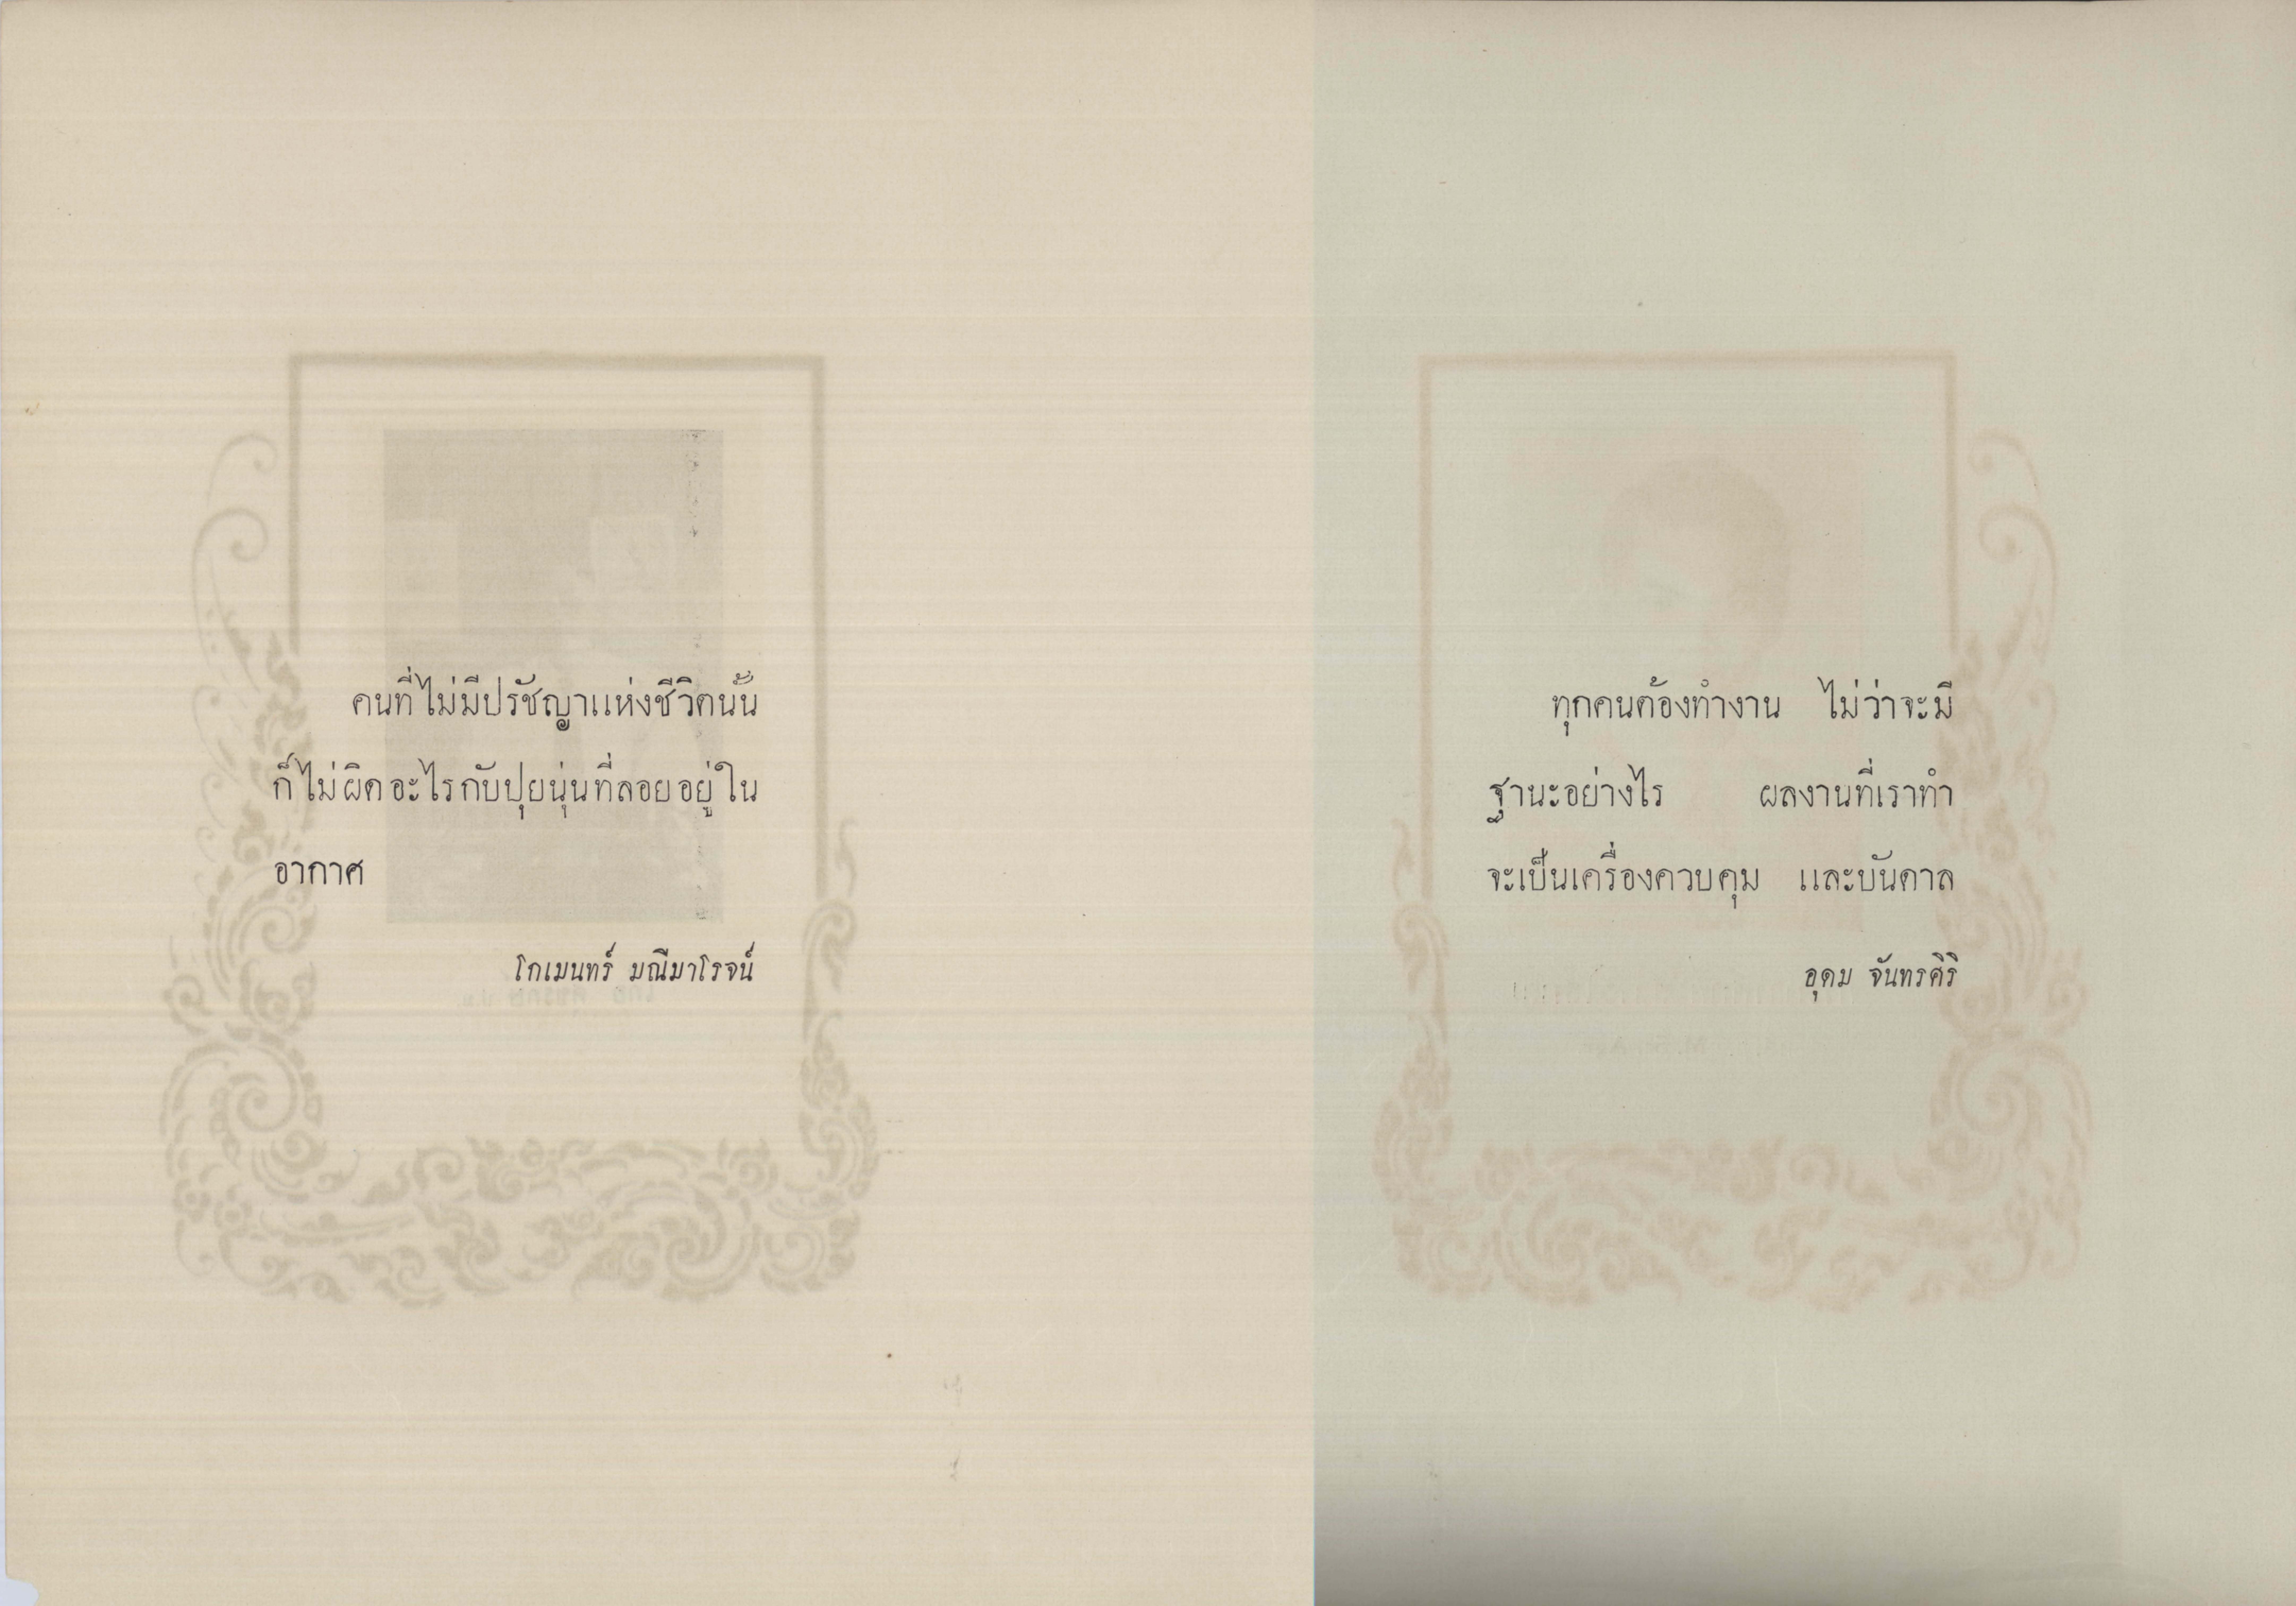 คนที่ไม่มีปรัชญาแห่งชีวิตนั้น
ก็ไม่ผิดอะไรกับปุยนุ่นที่ลอยอยู่ใน
อากาศ
โกเมนทร์ มณีมาโรจน์
ทุกคนต้องทำงาน ไม่ว่าจะมี
ฐานะอย่างไร ผลงานที่เราทำ
จะเป็นเครื่องควบคุม และบันดาล
อุดม จันทรศิริ